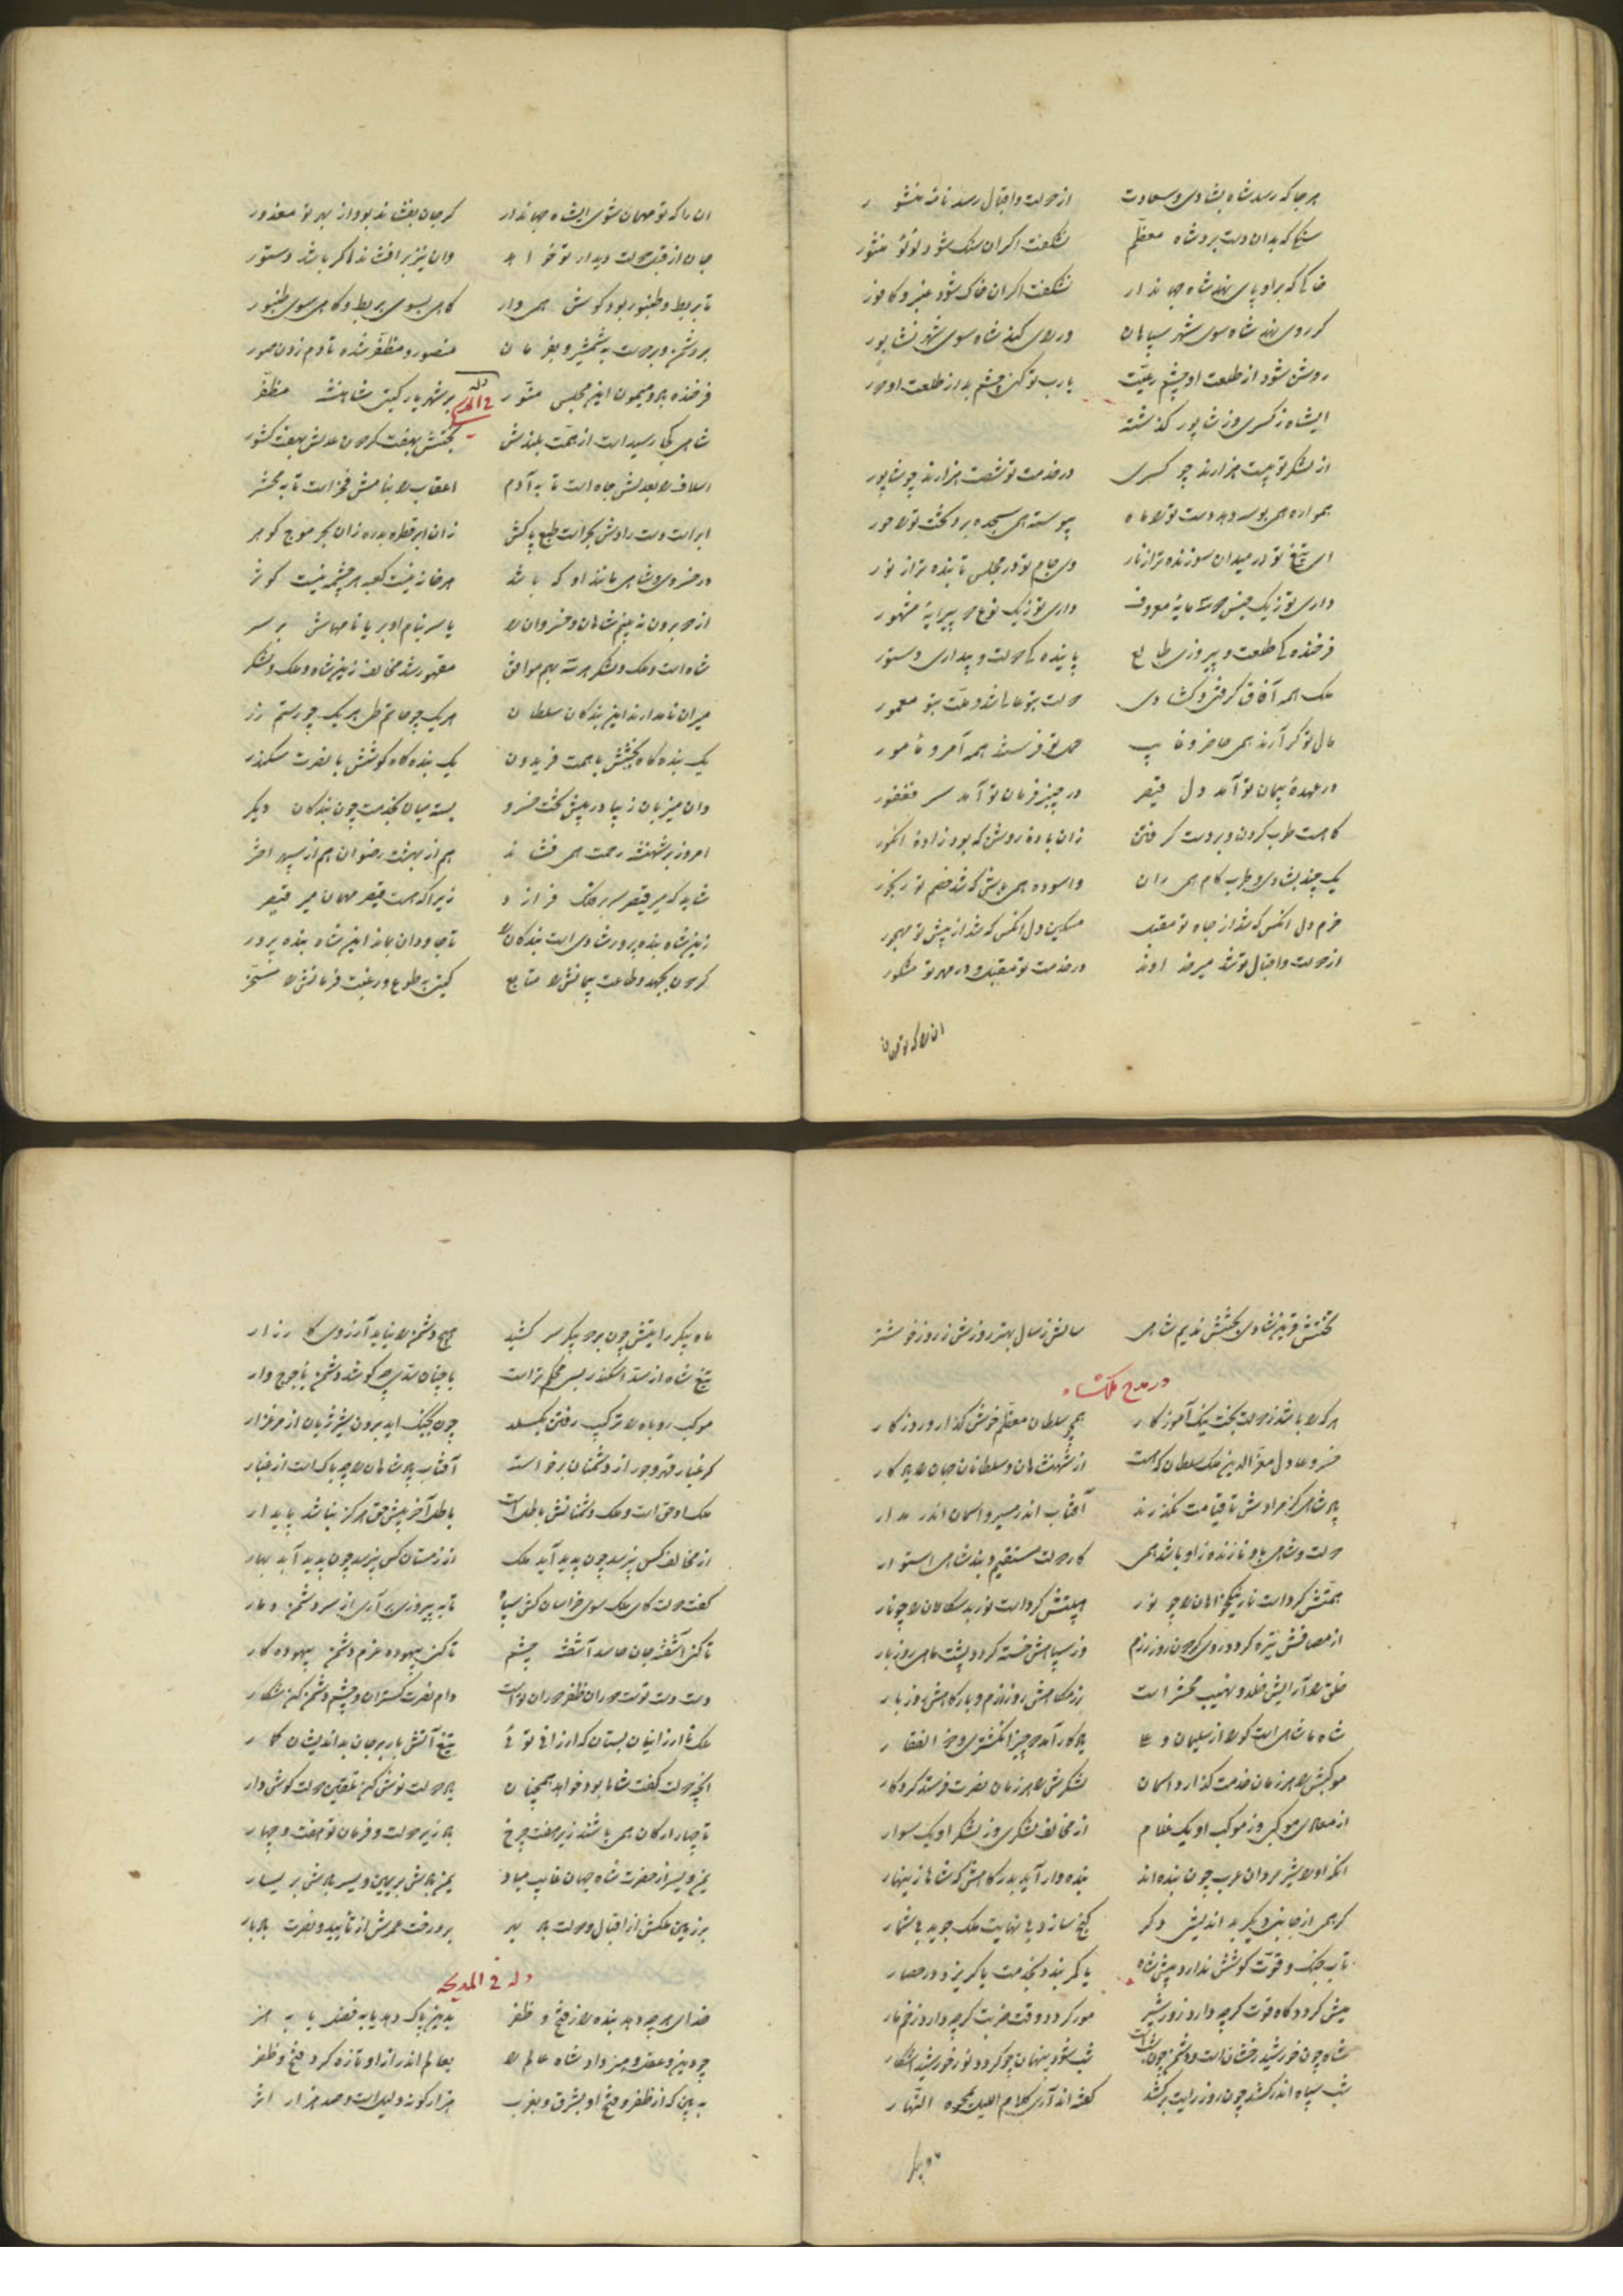 هر جا که رسد شاه بشادی و سعادت از دولت و اقبال رسد نامه منشور
سنگی که بدان دست برد شاه معظم نشگفت اگر آن سنگ شود لؤلؤ منثور
خاکی که براو پای نهد شاه جهاندار نشگفت اگر آن خاک شود عنبر و کافور
گر روی نهد شاه سوی شهر سپاهان ور رای کند شاه سوی شهر نشابور
روشن شود از طلعت او چشم رعیت یارب تو کن چشم بد از طلعت او دور
ای شاه ز کسری و ز شاپور گذشته
از لشکر تو بیست هزارند چو کسری در خدمت تو شصت هزارند چو شاپور
همواره همی بوسه دهد دست تو را ماه پیوسته همی سجده برد تخت تو را حور
ای تیغ تو در میدان سوزنده تر از نار وی جام تو در مجلس تابنده تر از نور
داری تو ز یک جنس دو مایه معروف داری تو ز یک نوع دو پیرایه مشهور
فرخنده یکی طلعت و پیروزی طالع پاینده یکی دولت و بیداری دستور
ملک همه آفاق گرفتی و گشادی دولت بتو عالی شد و ملت بتو معمور
مال تو گر آرند همی حاضر و غایب حمل تو فرستند همه آمر و مأمور
در عهده پیمان تو آمد دل قیصر در چنبر فرمان تو آمد سر فغفور
گاهست طرب کردن و بر دست گرفتن زان باده روشن که بود زاده انگور
یک چند بشادی و طرب کام همی ران و آسوده همی باش که شد خصم تو رنجور
خرم دل آنکس که شد از جاه تو مقبل مسکین دل آنکس که شد از پیش تو مهجور
از دولت و اقبال تو شد میر خداوند در خدمت تو مقبل و در مهر تو مشکور
آن را که تو مهمان
آن را که تو مهمان شوی ای شاه جهاندار گر جان بفشاند بود از بهر تو معذور
جان از قبل دولت دیدار تو خواهد وان نیز برافشاند اگر باشد دستور
تا بربط و طنبور بود گوش همی دار گاهی بسوی بربط و گاهی سوی طنبور
بر دشمن و بر دوست به شمشیر و بفرمان منصور و مظفر شده تا دم زدن صور
وله فی المدح
فرخنده باد و میمون این مجلس منور بر شهریار گیتی شاهنشه مظفر
شاهی کجا رسیدست از همت بلندش بختش بهفت گردون عدلش بهفت کشور
اسلاف را بعدلش جاه است تا به آدم اعقاب را بنامش فخر است تا به محشر
ابر است دست رادش بحر است طبع پاکش زان ابر قطره بدره زان بحر موج گوهر
در خسروی و شاهی مانند او که باشد هر خانه نیست کعبه هر چشمه نیست کوثر
از دو برون نه بینم شاهان و خسروان را یا سر بنام او بر یا نامهاش بر سر
شاه است و ملک و لشکر هر سه بهم موافق مقهور شد مخالف زین شاه و ملک و لشکر
میران نامدارند این بندگان سلطان هر یک چو حاتم طی هر یک چو رستم زر
یک بنده گاه بخشش با همت فریدون یک بنده گاه کوشش با نصرت سکندر
وان میزبان زیبا در پیش تخت خسرو بسته میان بخدمت چون بندگان دیگر
امروز بر شهنشه رحمت همی فشاند هم از بهشت رضوان هم از سپهر اختر
شاید که میر قیصر سر بر فلک فرازد زیرا که هست قیصر مهمان میر قیصر
زین شاه بنده پرور شادی است بندگان را تا جاودان بماناد این شاه بنده پرور
گردون بجهد و طاعت پیمانش را متابع گیتی به طوع و رغبت فرمانش را مسخر
تختش قرین شادی بختش ندیم شاهی سالش ز سال بهتر روزش ز روز خوشتر
در مدح ملکشاه
هر که را باشد ز دولت بخت نیک آموزگار همچو سلطان معظم خوش گذارد روزگار
خسرو عادل معز الدین ملک سلطان که هست از شهنشاهان و سلطانان جهان را یادگار
پادشاهی کز مرادش تا قیامت نگذرند آفتاب اندر مسیر و آسمان اندر مدار
دولت و شاهی باو نازنده زاو باشد همی کار دولت مستقیم و بند شاهی استوار
همتش کرد است نار نیکخواهان را چو نور هیبتش کرد است نور بدسگالان را چو نار
از مصافش تیره گردد روی گردون روز رزم وز سپاهش خسته گردد پشت ماهی روز بار
خلق را آرایش خلد و نهیب محشر است رزمگاهش روز رزم و بارگاهش روز بار
شاه ما شاهی است کورا از سلیمان و علی یادگار آمد دو چیز انگشتری و ذوالفقار
موکبش را هر زمان خدمت گذارد آسمان لشکرش را هر زمان نصرت فرستد کردگار
از معادی موکبی وز موکب او یک غلام از مخالف لشکری وز لشکر او یک سوار
آنکه او را شیر مردان عرب چون بنده اند بنده وار آید بدرگاهش که شاها زینهار
گر همی از جانبی دیگر بداندیشی دگر گنج سازد بی نهایت ملک جوید بی شمار
تاب جنگ و قوت کوشش ندارد پیش شاه یا کمر بندد بخدمت یا گریزد در حصار
میش گردد گاه قوت گرچه دارد زور شیر مور گردد وقت ضربت گرچه دارد زخم مار
شاه چون خورشید رخشان است و دشمن چون شب است شب شود پنهان چو گردد نور خورشید آشکار
شب سپاه اندر کشد چون روز رایت برکشد گفته اند آری کلام اللیل یمحوه النهار
ماه پیکر
ماه پیکر رایتش چون بر دو پیکر سر کشید هیچ دشمن را نیاید آرزوی کارزار
تیغ شاه از سد اسکندر بسی محکم تر است با چنان سدی چه کوشد دشمن یأجوج وار
موکب روباه را ترکیب رفتن بگسلد چون بجنگ آید برون شیر ژیان از مرغزار
گر غبار قهر و جور از دشمنان برخاسته آفتاب پادشاهان را چه باک است از غبار
ملک او حق است و ملک دشمنانش باطل است باطل آخر پیش حق هرگز نباشد پایدار
از مخالف کس نپرسد چون پدید آید ملک از زمستان کس نپرسد چون پدید آید بهار
گفت دولت کای ملک سوی خراسان کش سپاه تا به پیروزی برآری از سر دشمن دمار
تا کنی آشفته جان حاسد آشفته چشم تا کنی بیهوده عزم دشمن بیهوده کار
دست دست توست دوران ظفر دوران توست دام نصرت گستران و چشم دشمن کن شکار
ملک ناارزانیان بستان که ارزانی توئی تیغ آتش بار بر جان بداندیشان گمار
آنچه دولت گفت شاها بود خواهد همچنان باده دولت نوش کن تلقین دولت گوش دار
تا چهار ارکان همی باشند زیر هفت چرخ باد زیر دولت و فرمان تو هفت و چهار
یمن و یسر از حضرت شاه جهان غایب مباد یمن بادش بر یمین و یسر بادش بر یسار
بر زمین ملکش از اقبال و دولت باد بر بر درخت عمرش از تأیید و نصرت باد بار
وله فی المدیحه
خدای هر چه دهد بنده را ز فتح و ظفر بدین پاک دهد یا به فضل یا به هنر
چو دین و عقل و هنر داد شاه عالم را بعالم اندر از او تازه کرد فتح و ظفر
به بین که از ظفر و فتح او بشرق و بغرب هزار گونه دلیل است و صد هزار اثر